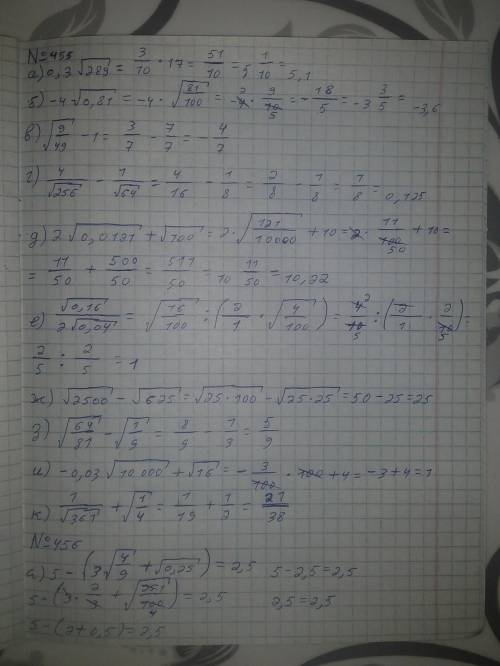 № 455
а) 0,3 √289 = 3/10 · 17 = 51/10 = 5 1/10 = 5,1
б) -4 √0,81 = -4 · √81/100 = -4 2 · 9/10 5 = - 18/5 = -3 3/5 = -3,6
в) √9/49 - 1 = 3/7 - 7/7 = - 4/7
г) 4/√256 - 1/√64 = 4/16 - 1/8 = 2/8 - 1/8 = 1/8 = 0,125
д) 2 √0,0121 + √100 = 2 · √121/10000 + 10 = 2 · 11/100 50 + 10 =
= 11/50 + 500/50 = 511/50 = 10 11/50 = 10,22
е) √0,16/2√0,04 = √16/100 : (2/1 · √4/100) = 4 2/10 5 : (2/1 · 2/10 5) =
2/5 : 2/5 = 1
ж) √2500 - √625 = √25·100 - √25·25 = 50 - 25 = 25
з) √64/81 - √1/9 = 8/9 - 1/3 = 5/9
и) -0,03 · √10.000 + √16 = - 3/100 · 100 + 4 = -3 + 4 = 1
к) 1/√361 + √1/4 = 1/19 + 1/2 = 21/38
№ 456
а) 5 - (3√4/9 + √0,25) = 2,5 5 - 2,5 = 2,5
5 - (3 · 2/3 + √25/100 4) = 2,5 2,5 = 2,5
5 - (2 + 0,5) = 2,5